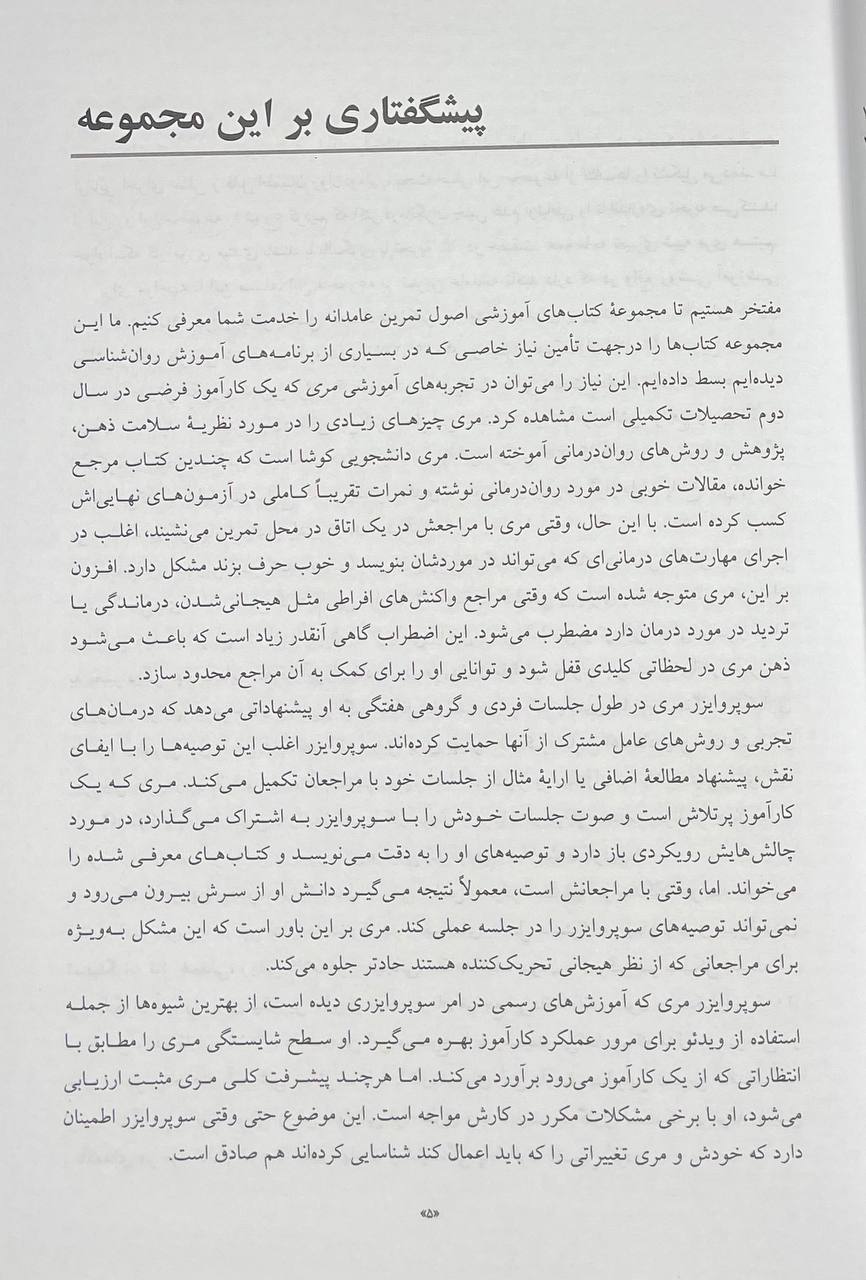 پیشگفتاری بر این مجموعه
مفتخر هستیم تا مجموعهٔ کتاب‌های آموزشی اصول تمرین عامدانه را خدمت شما معرفی کنیم. ما این
مجموعه کتاب‌ها را درجهت تأمین نیاز خاصی که در بسیاری از برنامه‌های آموزش روان‌شناسی
دیده‌ایم بسط داده‌ایم. این نیاز را می‌توان در تجربه‌های آموزشی مری که یک کارآموز فرضی در سال
دوم تحصیلات تکمیلی است مشاهده کرد. مری چیزهای زیادی را در مورد نظریهٔ سلامت ذهن،
پژوهش و روش‌های روان‌درمانی آموخته است. مری دانشجویی کوشا است که چندین کتاب مرجع
خوانده، مقالات خوبی در مورد روان‌درمانی نوشته و نمرات تقریباً کاملی در آزمون‌های نهایی‌اش
کسب کرده است. با این حال، وقتی مری با مراجعش در یک اتاق در محل تمرین می‌نشیند، اغلب در
اجرای مهارت‌های درمانی‌ای که می‌تواند در موردشان بنویسد و خوب حرف بزند مشکل دارد. افزون
بر این، مری متوجه شده است که وقتی مراجع واکنش‌های افراطی مثل هیجانی‌شدن، درماندگی یا
تردید در مورد درمان دارد مضطرب می‌شود. این اضطراب گاهی آنقدر زیاد است که باعث می‌شود
ذهن مری در لحظاتی کلیدی قفل شود و توانایی او را برای کمک به آن مراجع محدود سازد.
سوپروایزر مری در طول جلسات فردی و گروهی هفتگی به او پیشنهاداتی می‌دهد که درمان‌های
تجربی و روش‌های عامل مشترک از آنها حمایت کرده‌اند. سوپروایزر اغلب این توصیه‌ها را با ایفای
نقش، پیشنهاد مطالعهٔ اضافی یا ارایهٔ مثال از جلسات خود با مراجعان تکمیل می‌کند. مری که یک
کارآموز پرتلاش است و صوت جلسات خودش را با سوپروایزر به اشتراک می‌گذارد، در مورد
چالش‌هایش رویکردی باز دارد و توصیه‌های او را به دقت می‌نویسد و کتاب‌های معرفی شده را
می‌خواند. اما، وقتی با مراجعانش است، معمولاً نتیجه می‌گیرد دانش او از سرش بیرون می‌رود و
نمی‌تواند توصیه‌های سوپروایزر را در جلسه عملی کند. مری بر این باور است که این مشکل به‌ویژه
برای مراجعانی که از نظر هیجانی تحریک‌کننده هستند حادتر جلوه می‌کند.
سوپروایزر مری که آموزش‌های رسمی در امر سوپروایزری دیده است، از بهترین شیوه‌ها از جمله
استفاده از ویدئو برای مرور عملکرد کارآموز بهره می‌گیرد. او سطح شایستگی مری را مطابق با
انتظاراتی که از یک کارآموز می‌رود برآورد می‌کند. اما هرچند پیشرفت کلی مری مثبت ارزیابی
می‌شود، او با برخی مشکلات مکرر در کارش مواجه است. این موضوع حتی وقتی سوپروایزر اطمینان
دارد که خودش و مری تغییراتی را که باید اعمال کند شناسایی کرده‌اند هم صادق است.
«۵»